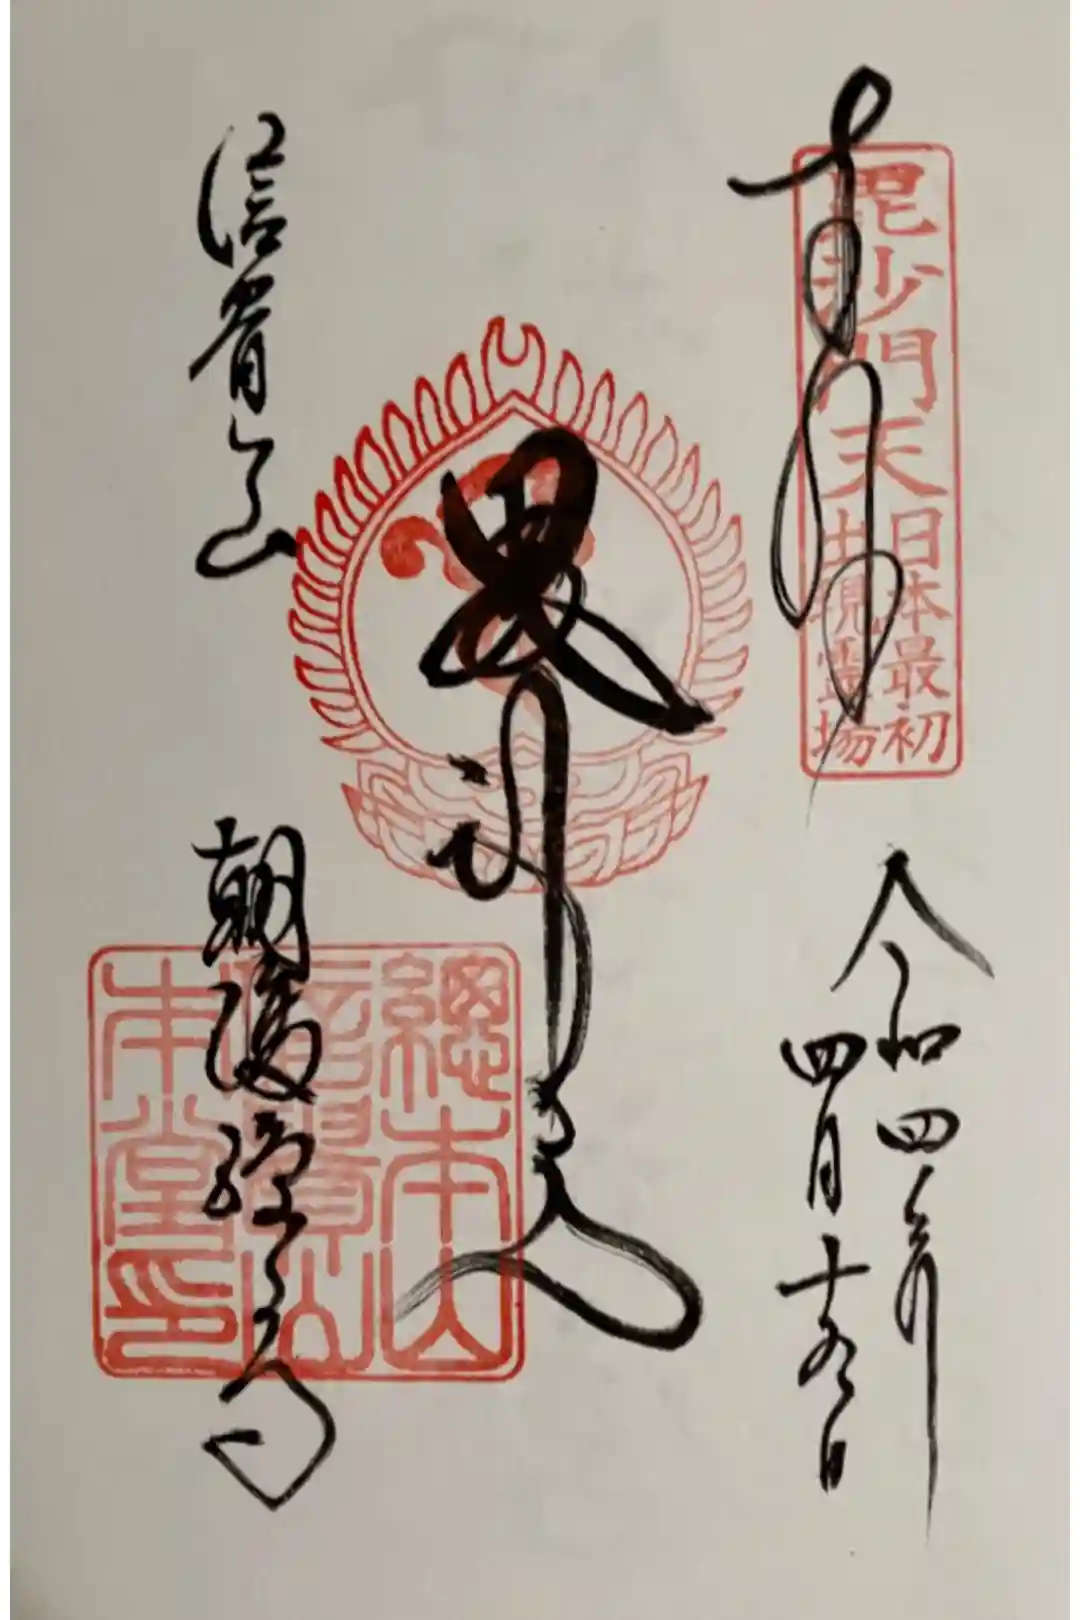 奉拝
毘沙門天
日本最初
出現霊場
令和四年
四月十 日
毘沙門天
信貴山
朝護孫子寺
總本山
信貴山
本堂印